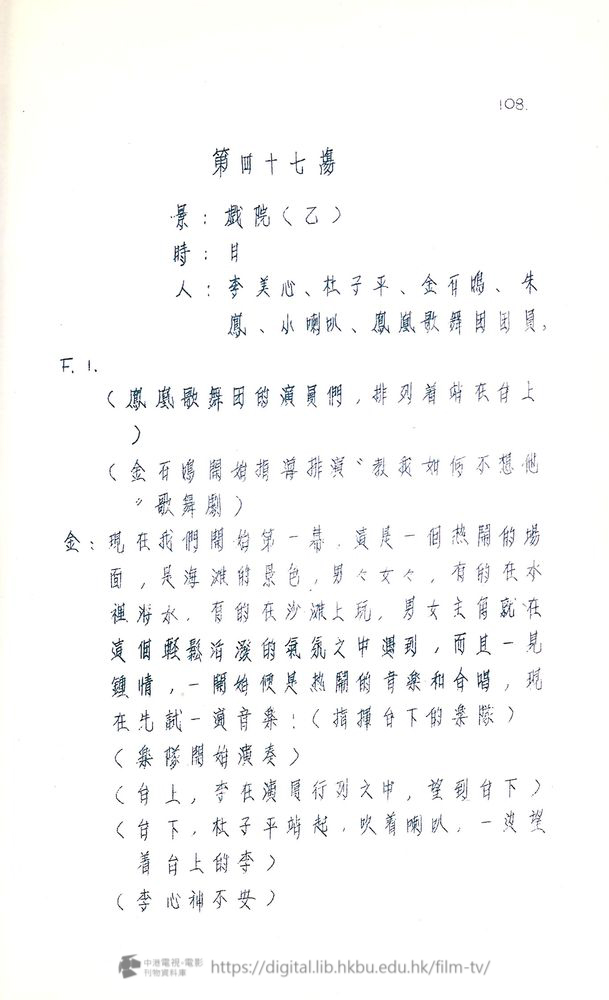 108.
第四十七場
景：戲院（乙）
時：日
人：李美心、杜子平、金石鳴、朱
鳳、小喇叭、鳳凰歌舞团团員。
F. I.
（鳳凰歌舞团的演員們，排列着站在台上
）
（金石鳴開始指導排演〝教我如何不想他
〞歌舞劇）
金：現在我們開始第一幕，這是一個热鬧的場
面，是海灘的景色，男々女々，有的在水
裡游水，有的在沙灘上玩，男女主角就在
這個輕鬆活潑的氣氛之中遇到，而且一見
鍾情，一開始便是热鬧的音樂和合唱，現
在先試一演音樂！（指揮台下的樂隊）
（樂隊開始演奏）
（台上，李在演員行列之中，望到台下）
（台下，杜子平站起，吹着喇叭，一边望
着台上的李）
（李心神不安）
中港電視·電影
刊物資料庫
https://digital.lib.hkbu.edu.hk/film-tv/